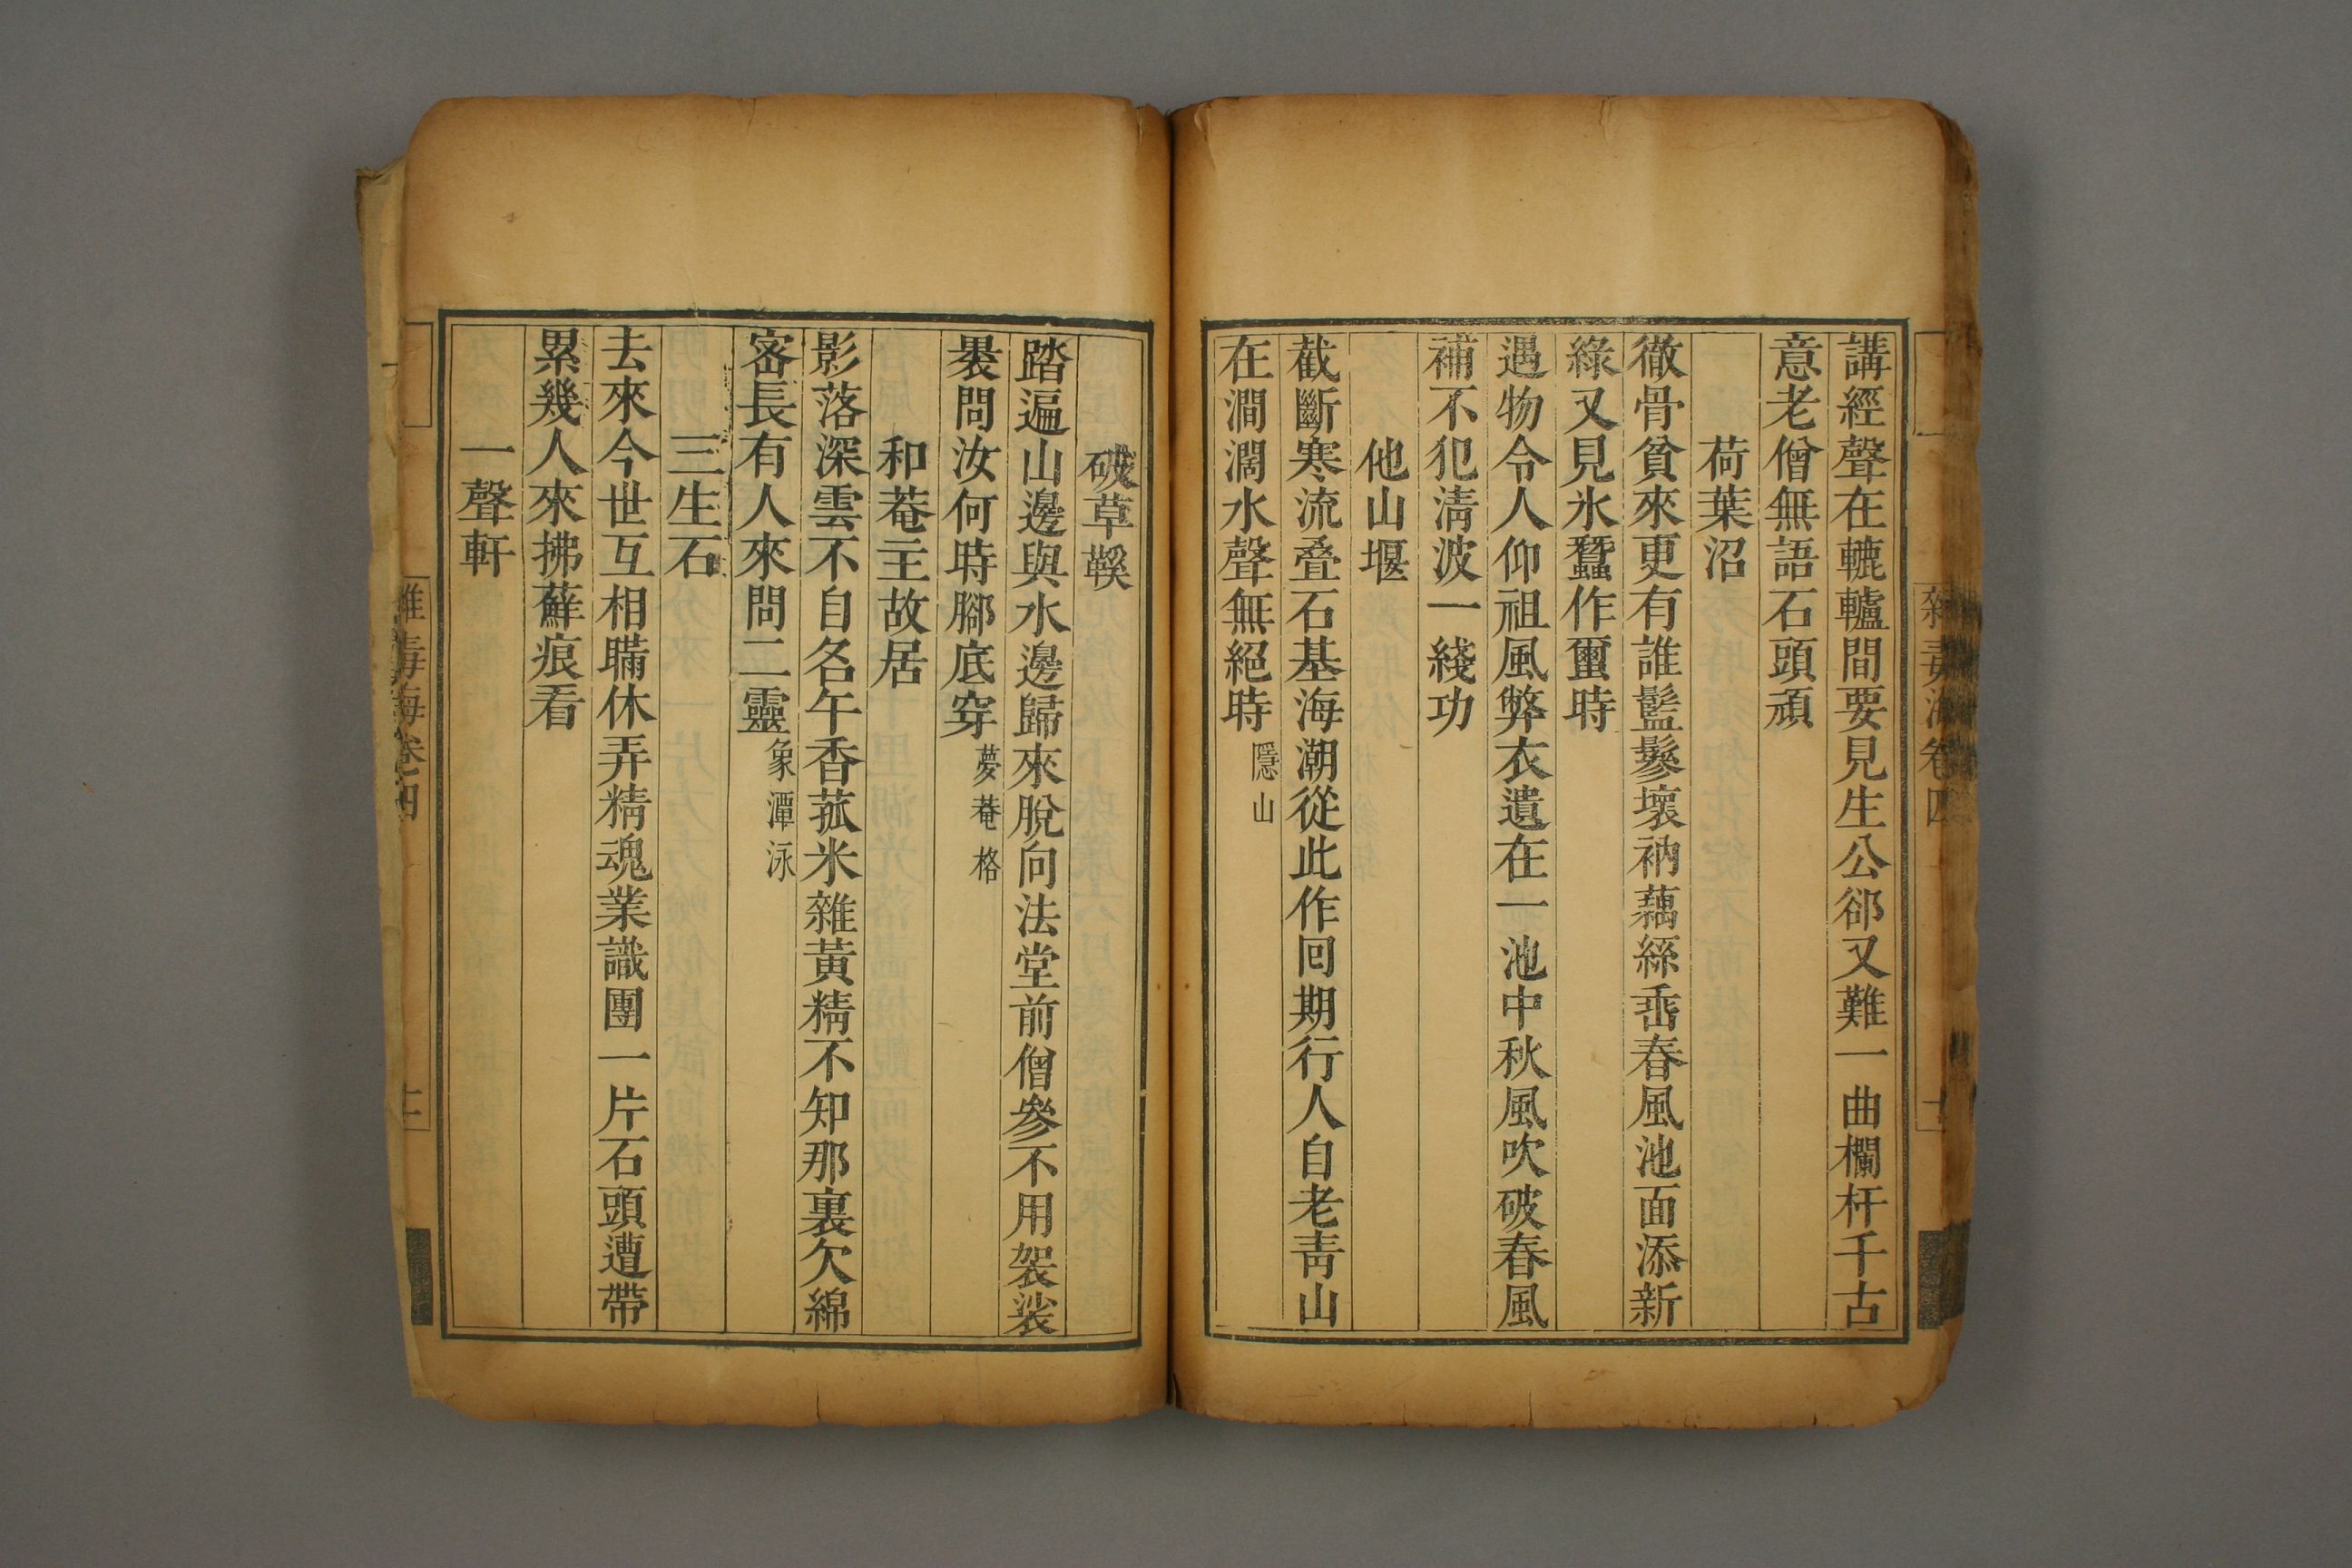 講經聲在轆轤間要見生公郤又難一曲欄杆千古
意老僧無語石頭頑
荷葉沼
徹骨貧來更有誰鬅鬖壞衲藕絲垂春風池面添新
綠又見氷蠶作蠒時
遇物令人仰祖風弊衣遺在一池中秋風吹破春風
補不犯清波一綫功
他山堰
截斷寒流疊石基海潮從此作回期行人自老靑山
在澗濶水聲無絕時 隱山
破草鞵
踏遍山邊與水邊歸來脫向法堂前僧參不用袈裟
褁問汝何時腳底穿 夢菴格
和菴主故居
影落深雲不自名午香菰米雜黃精不知那裏欠綿
密長有人來問二靈 象潭泳
三生石
去來今世互相瞞休弄精魂業識團一片石頭遭帶
累幾人來拂蘚痕看
一聲軒
雜毒海卷四